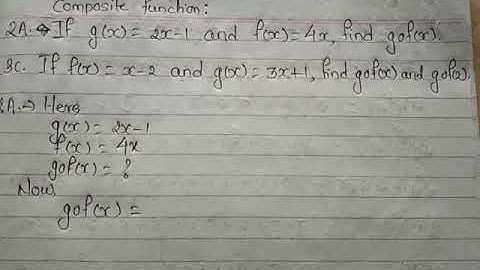 Composite function:
2A. → If g(x) = 2x-1 and f(x) = 4x, find gof(x).
3C. If f(x) = x-2 and g(x) = 3x+1, find gof(x) and gof(2).
2A. → Here
g(x) = 2x-1
f(x) = 4x
gof(x) = ?
Now
gof(x) =